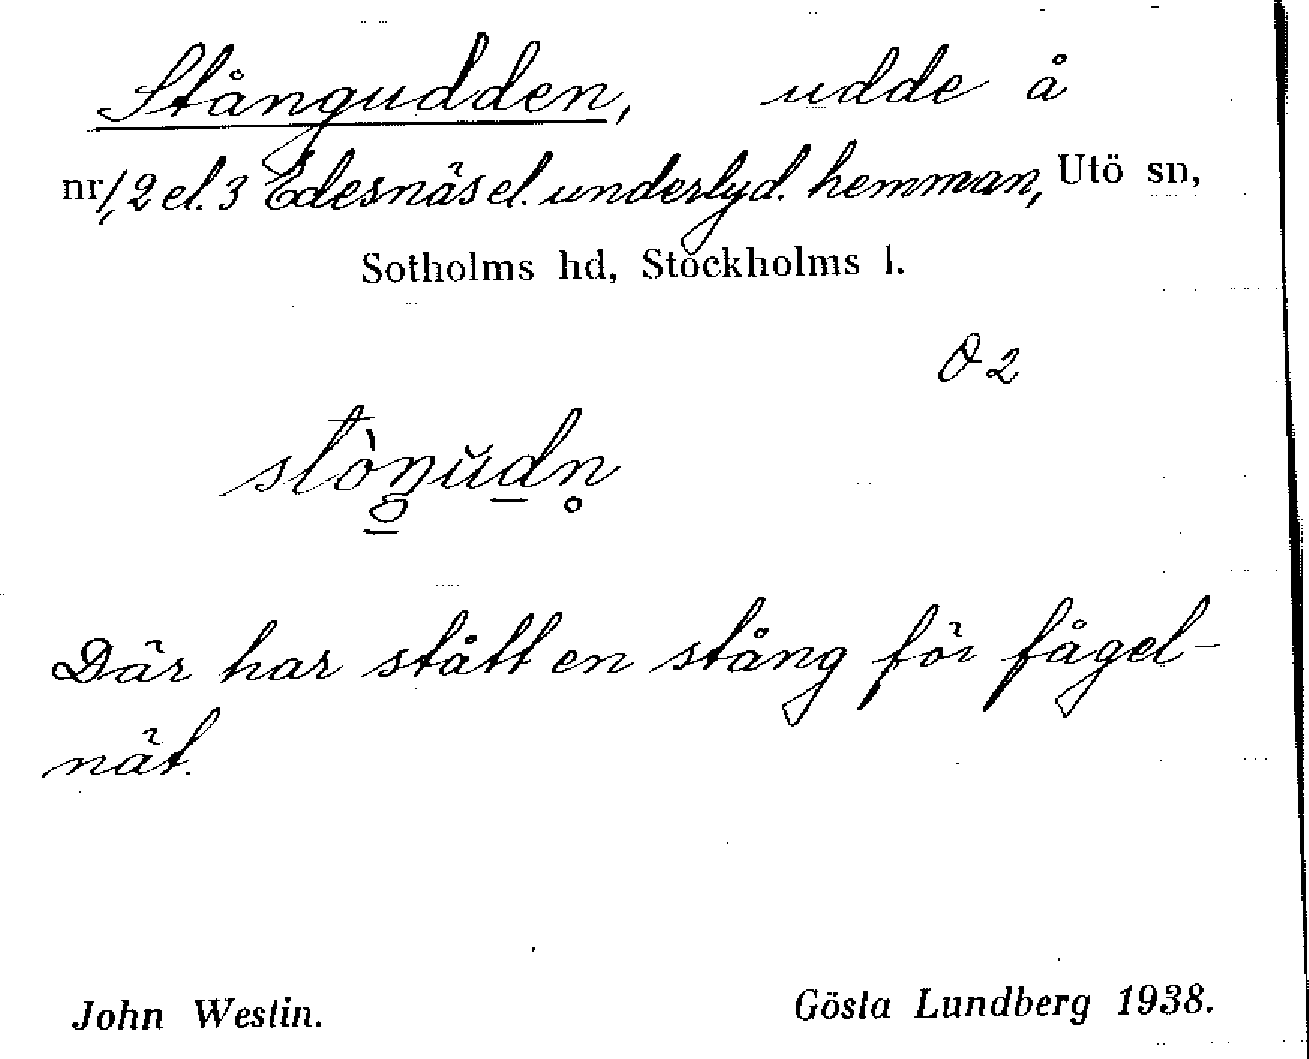 Stångudden, udde å
nr 1, 2 el. 3 Edesnäs el. underlyd. hemman, Utö sn,
Sotholms hd, Stockholms l.
Ö 2
Där har stått en stång för fågel-
nät.
John Westin. Gösta Lundberg 1938.